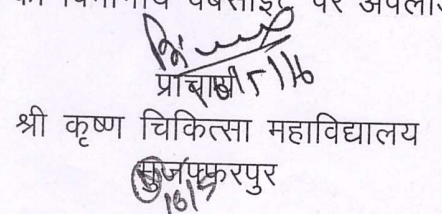 को विभागीय वेबसाईट पर अपलोड
प्राचार्य
श्री कृष्ण चिकित्सा महाविद्यालय
मुजफ्फरपुर